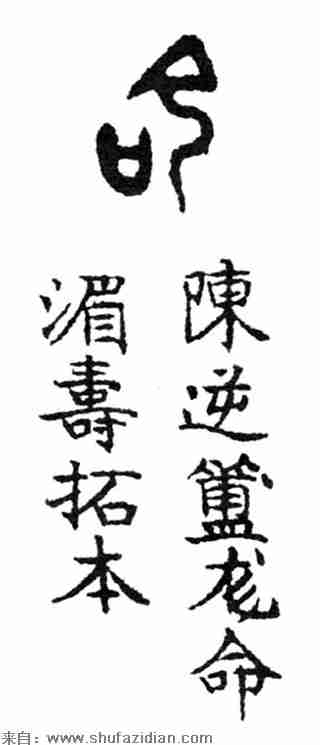 命
陳逆簠命
湄壽拓本
来自: www.shufazidian.com